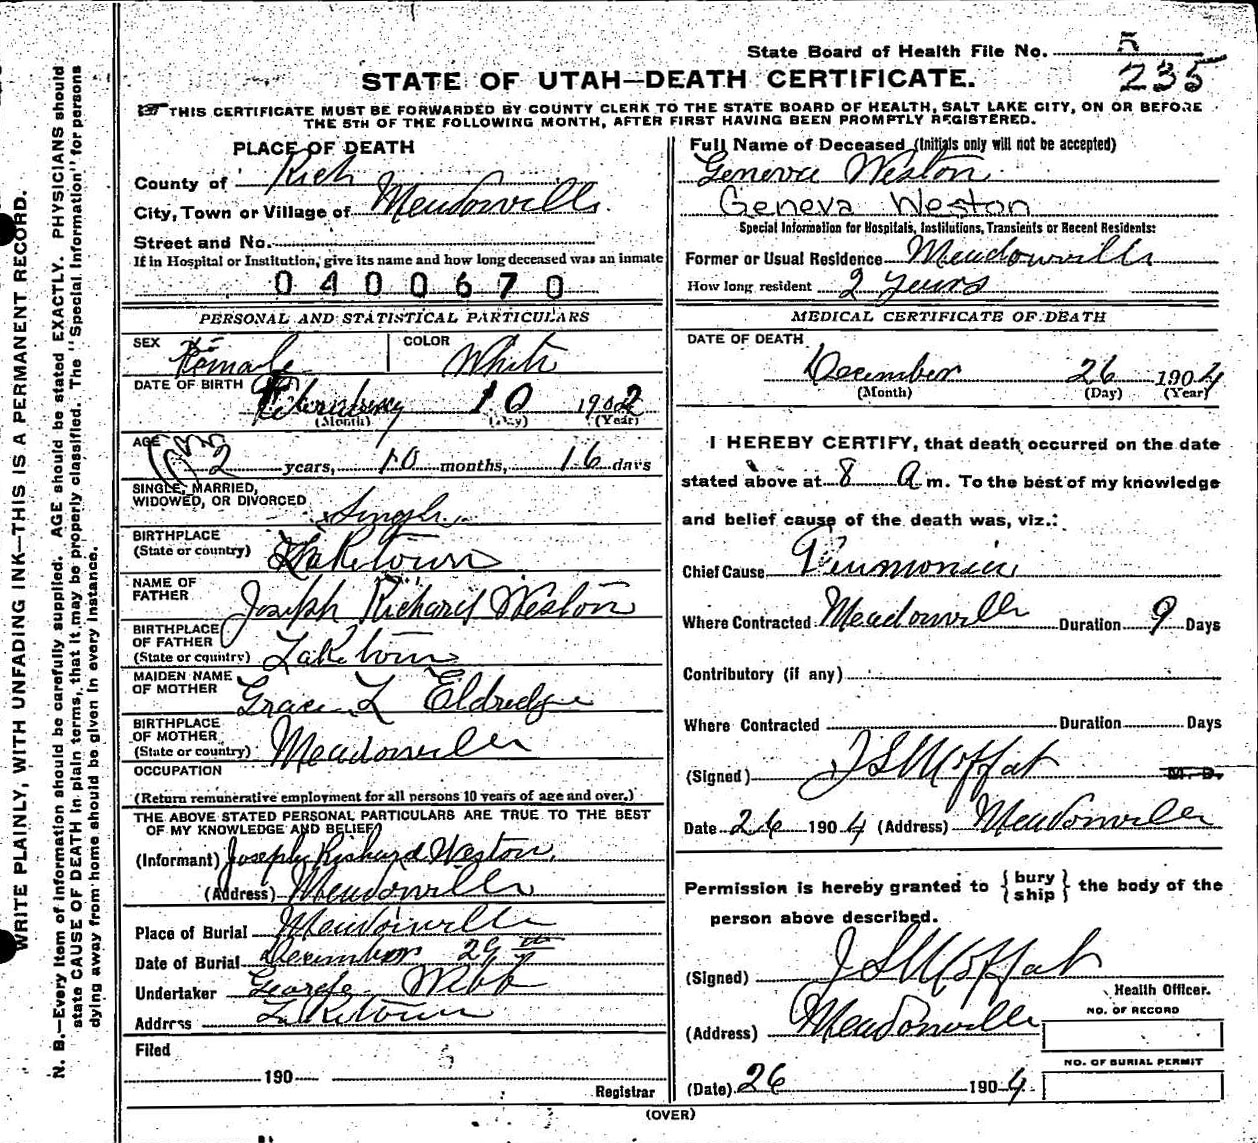 State Board of Health File No. 5
235
STATE OF UTAH—DEATH CERTIFICATE.
THIS CERTIFICATE MUST BE FORWARDED BY COUNTY CLERK TO THE STATE BOARD OF HEALTH, SALT LAKE CITY, ON OR BEFORE
THE 5TH OF THE FOLLOWING MONTH, AFTER FIRST HAVING BEEN PROMPTLY REGISTERED.
WRITE PLAINLY, WITH UNFADING INK—THIS IS A PERMANENT RECORD.
N. B.—Every item of information should be carefully supplied. AGE should be stated EXACTLY. PHYSICIANS should
state CAUSE OF DEATH in plain terms, that it may be properly classified. The "Special Information" for persons
dying away from home should be given in every instance.
PLACE OF DEATH
County of Rich
City, Town or Village of Meadowville
Street and No.
If in Hospital or Institution, give its name and how long deceased was an inmate
0400670
PERSONAL AND STATISTICAL PARTICULARS
SEX Female COLOR White
DATE OF BIRTH February 10 1902
(Month) (Day) (Year)
AGE 2 years, 10 months, 16 days
SINGLE, MARRIED,
WIDOWED, OR DIVORCED Single
BIRTHPLACE
(State or country) Laketown
NAME OF
FATHER Joseph Richard Weston
BIRTHPLACE
OF FATHER
(State or country) Laketown
MAIDEN NAME
OF MOTHER Grace L Eldredge
BIRTHPLACE
OF MOTHER
(State or country) Meadowville
OCCUPATION
(Return remunerative employment for all persons 10 years of age and over.)
THE ABOVE STATED PERSONAL PARTICULARS ARE TRUE TO THE BEST
OF MY KNOWLEDGE AND BELIEF
(Informant) Joseph Richard Weston.
(Address) Meadowville
Place of Burial Meadowville
Date of Burial December 29th
Undertaker George Webb
Address Laketown
Filed
190
Registrar
Full Name of Deceased (Initials only will not be accepted)
Geneva Weston
Geneva Weston
Special Information for Hospitals, Institutions, Transients or Recent Residents:
Former or Usual Residence Meadowville
How long resident 2 years
MEDICAL CERTIFICATE OF DEATH
DATE OF DEATH
December 26 1904
(Month) (Day) (Year)
I HEREBY CERTIFY, that death occurred on the date
stated above at 8 a m. To the best of my knowledge
and belief cause of the death was, viz.:
Chief Cause Pnumonia
Where Contracted Meadowville Duration 9 Days
Contributory (if any)
Where Contracted Duration Days
(Signed) J S Moffat M. D.
Date 26 1904 (Address) Meadowville
Permission is hereby granted to {bury ship} the body of the
person above described.
(Signed) J S Moffat
Health Officer.
(Address) Meadowville
NO. OF RECORD
NO. OF BURIAL PERMIT
(Date) 26 1904
(OVER)